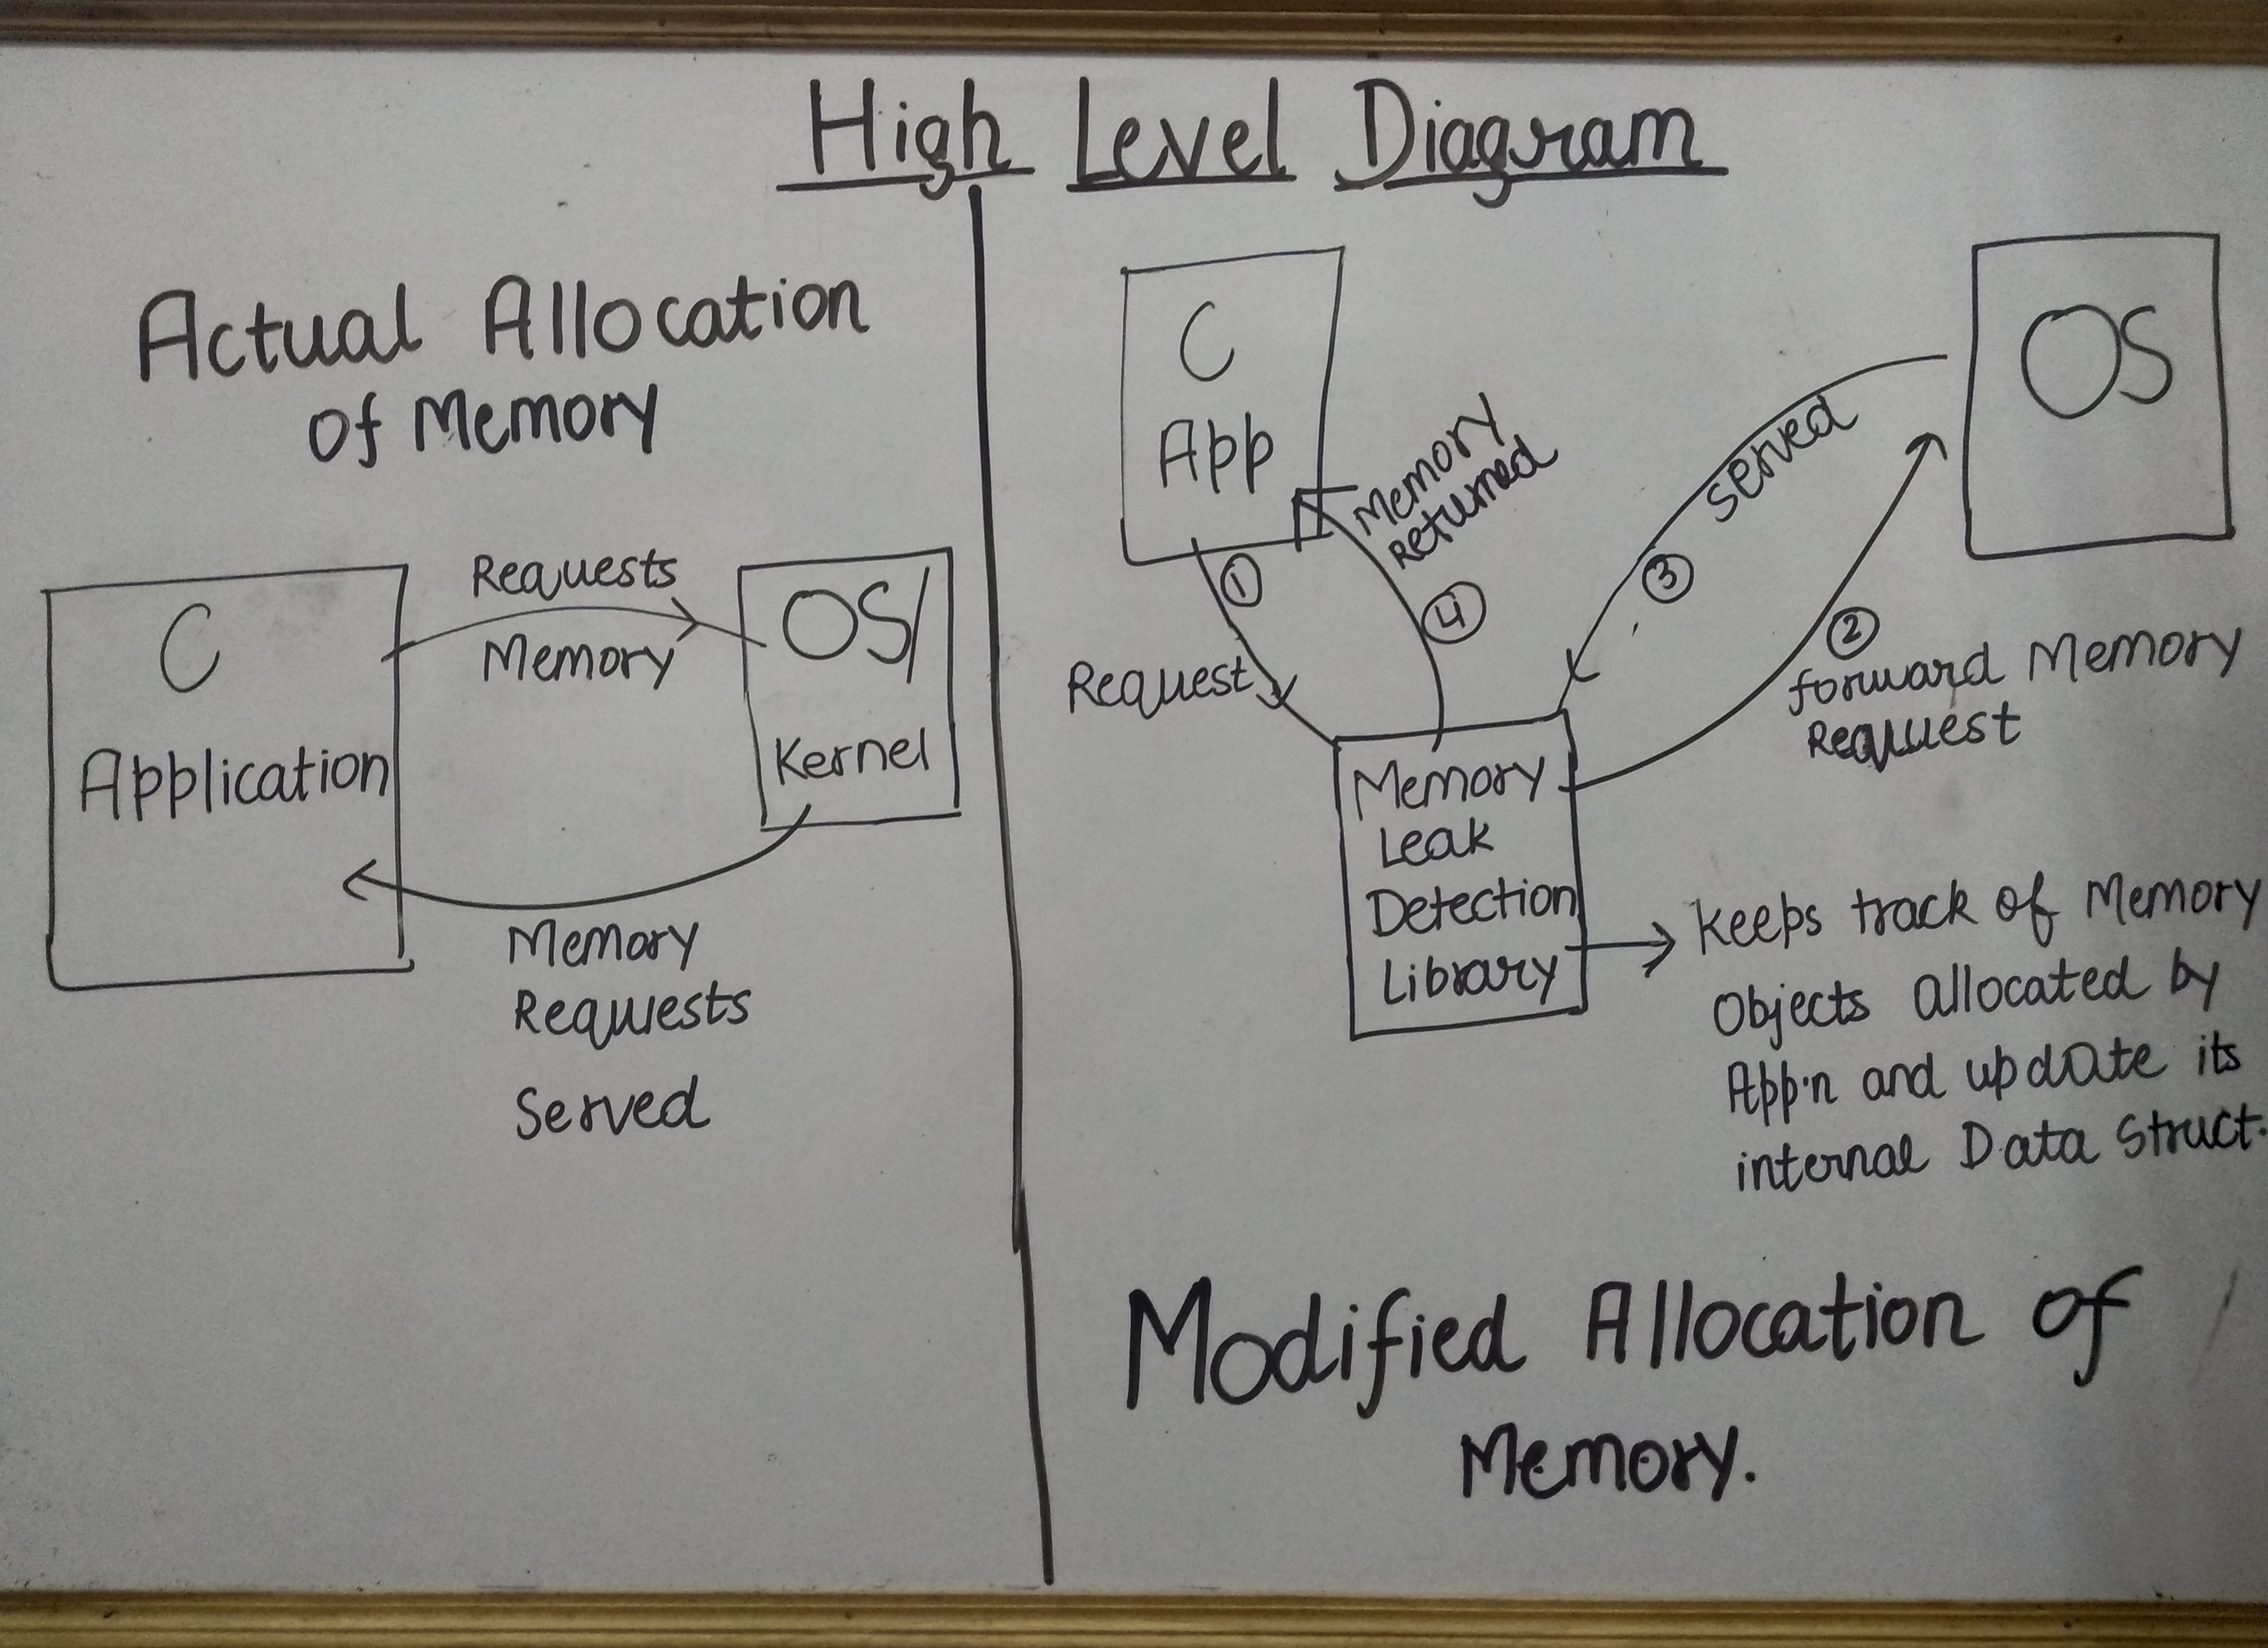 High Level Diagram
Actual Allocation
of Memory
C
Application
Requests
Memory
OS/
Kernel
Memory
Requests
Served
C
App
OS
①
Request
②
forward Memory
Request
③
served
④
Memory
returned
Memory
Leak
Detection
Library
keeps track of Memory
Objects allocated by
App'n and update its
internal Data Struct.
Modified Allocation of
Memory.